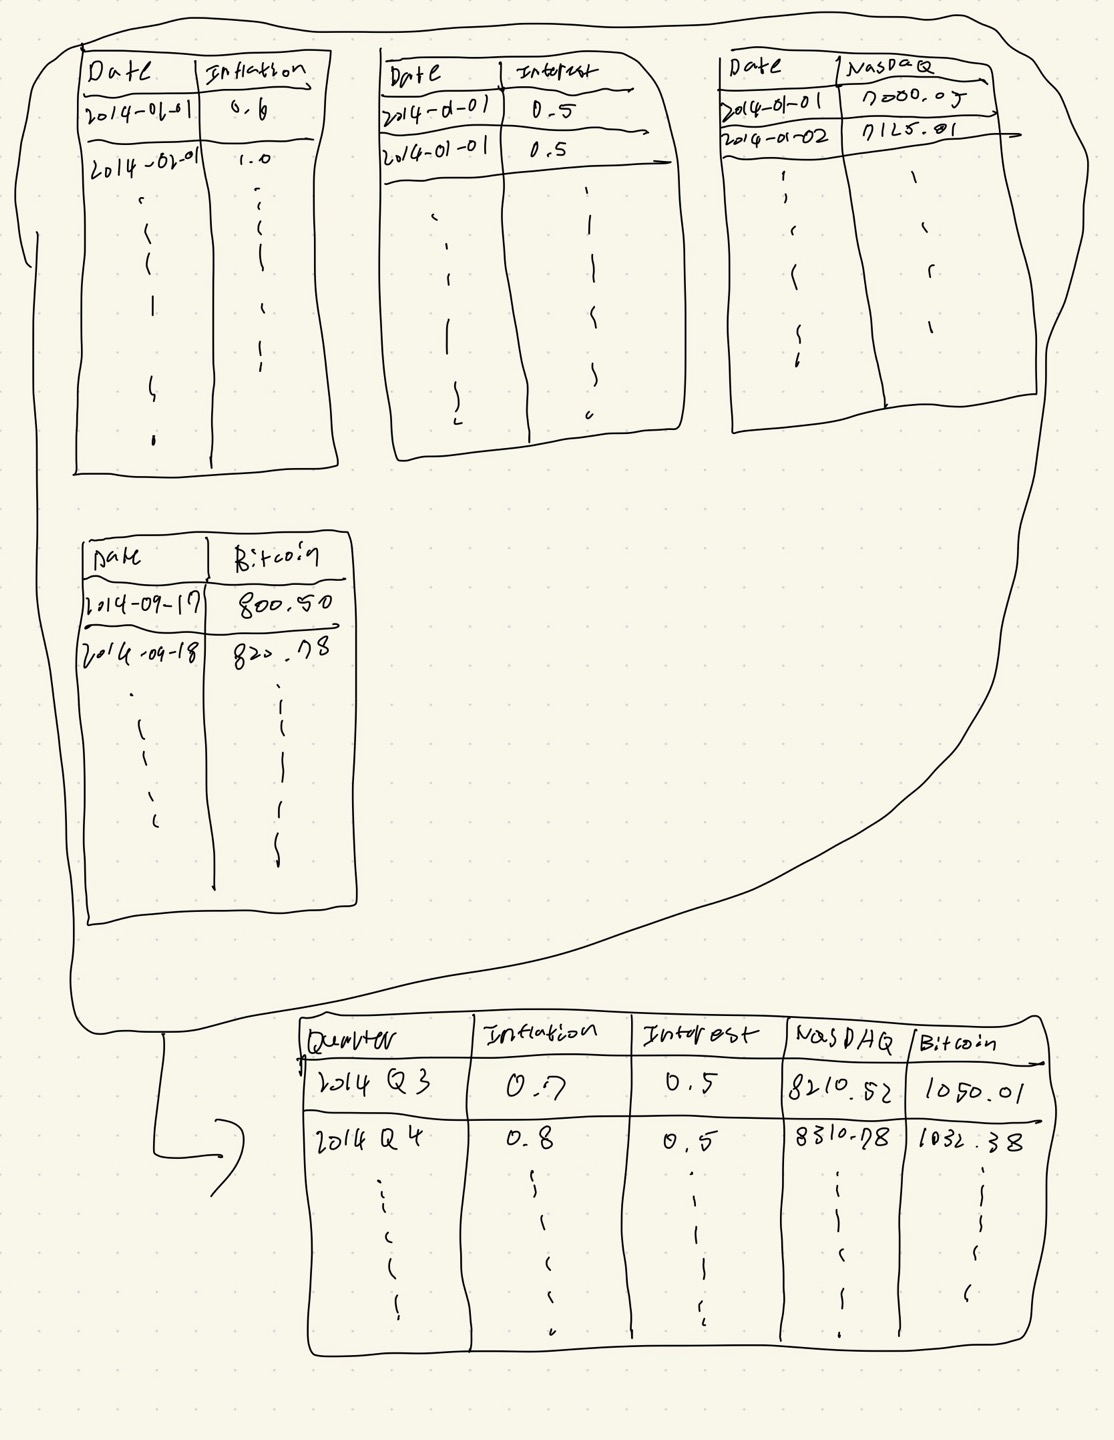 Date Inflation
2014-01-01 0.6
2014-02-01 1.0
Date Interest
2014-01-01 0.5
2014-01-01 0.5
Date NASDAQ
2014-01-01 7000.05
2014-01-02 7125.01
Date Bitcoin
2014-09-17 800.50
2014-09-18 820.78
Quarter Inflation Interest NASDAQ Bitcoin
2014 Q3 0.7 0.5 8210.52 1050.01
2014 Q4 0.8 0.5 8310.78 1032.38